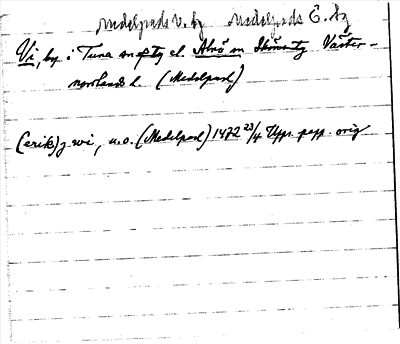 Medelpads v. ky Medelpads Ö. ky
Vi, by i Tuna sn el Alnö sn Väster-
norrlands l. (Medelpad)
(erik) j wi, u.o. (Medelpad) 1472 23/4 Upps. papp. orig